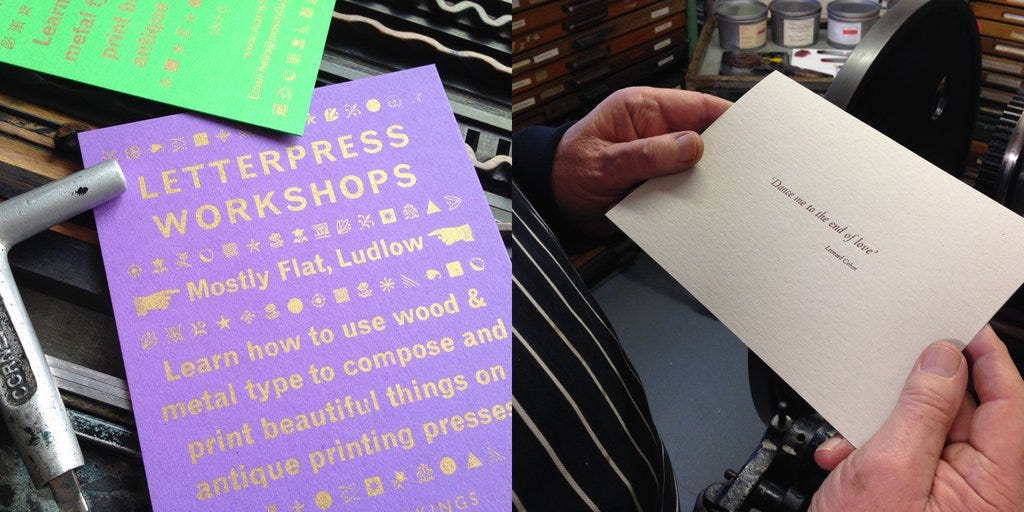 Learn
metal ty
print b
antique
www.mostly
Email hello@mostly
LETTERPRESS
WORKSHOPS
Mostly Flat, Ludlow
Learn how to use wood &
metal type to compose and
print beautiful things on
antique printing presses
KINGS
'Dance me to the end of love'
Leonard Cohen